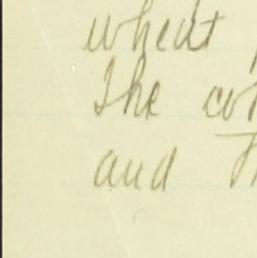 wheat
The co
and